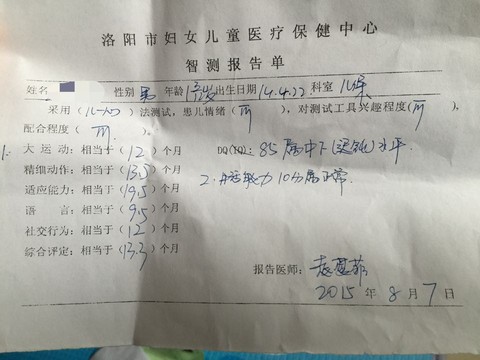 洛阳市妇女儿童医疗保健中心
智测报告单
姓名 性别 男 年龄 1岁 出生日期 14.4.22 科室 儿保
采用（儿心）法测试，患儿情绪（可），对测试工具兴趣程度（可），
配合程度（可）。
1. 大运动：相当于（12）个月 DQ(IQ)：85 属中下（迟钝）水平.
精细动作：相当于（13.5）个月
2. 能力10分属正常.
适应能力：相当于（19.5）个月
语言：相当于（9.5）个月
社交行为：相当于（12）个月
综合评定：相当于（13.3）个月
报告医师：
2015 年 8 月 7 日